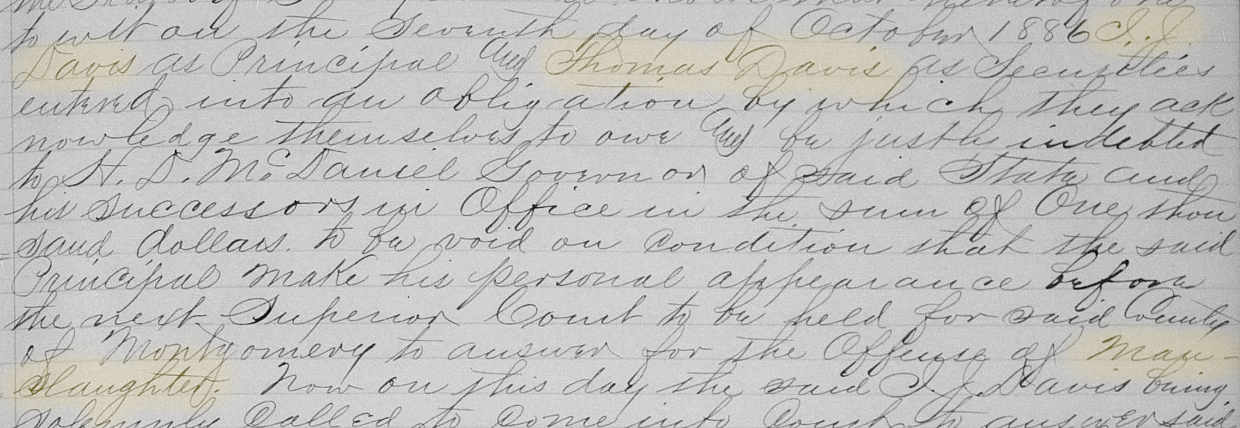 to wit on the Seventh day of October 1886 I. J.
Davis as Principal and Thomas Davis as Securities
entered into an obligation by which they ack
nowledge themselves to owe and be justly indebted
to H. D. McDaniel Governor of said State and
his successors in Office in the sum of One thou
=sand dollars. to be void on condition that the said
Principal make his personal appearance before
the next Superior Court to be held for said County
of Montgomery to answer for the Offense of Man-
slaughter. Now on this day the said I. J. Davis being
solemnly Called to come into Court to answer said